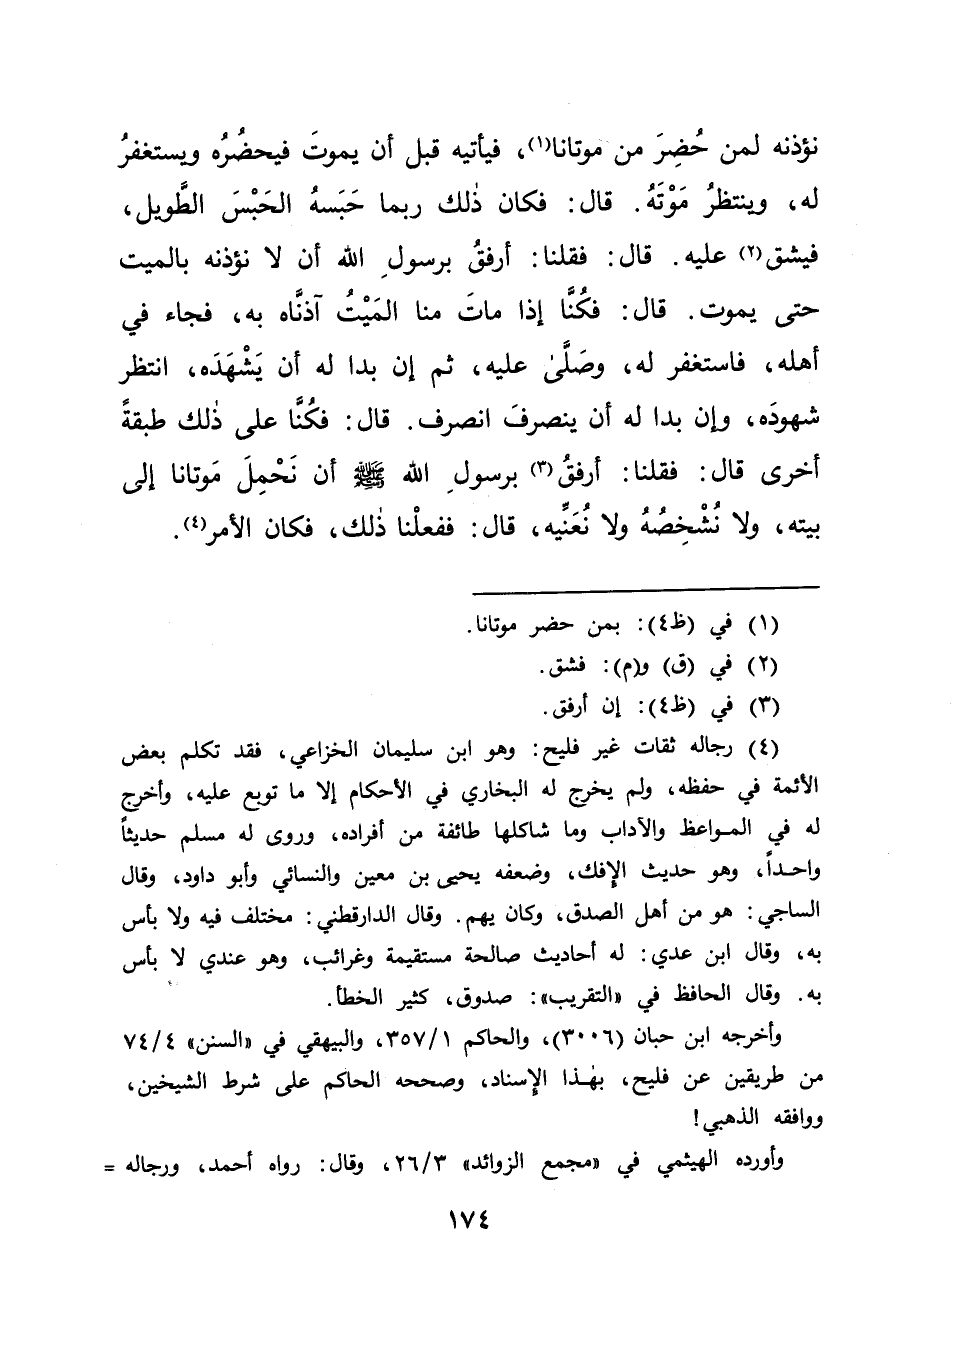 نؤذنه لمن حُضِرَ من موتانا(١)، فيأتيه قبل أن يموتَ فيحضُرُه ويستغفرُ
له، وينتظرُ مَوْتَهُ. قال: فكان ذٰلك ربما حَبَسهُ الحَبْسَ الطَّويل،
فيشق(٢) عليه. قال: فقلنا: أرفقُ برسولِ الله أن لا نؤذنه بالميت
حتى يموت. قال: فكُنَّا إذا ماتَ منا المَيْتُ آذنَّاه به، فجاء في
أهله، فاستغفر له، وصَلَّىٰ عليه، ثم إن بدا له أن يَشْهَدَه، انتظر
شهودَه، وإن بدا له أن ينصرفَ انصرف. قال: فكُنَّا على ذٰلك طبقةً
أخرى قال: فقلنا: أرفقُ(٣) برسولِ الله ﷺ أن نَحْمِلَ مَوتانا إلى
بيته، ولا نُشْخِصُهُ ولا نُعَنِّيه، قال: ففعلْنا ذٰلك، فكان الأمر(٤).
(١) في (ظ٤): بمن حضر موتانا.
(٢) في (ق) و(م): فشق.
(٣) في (ظ٤): إن أرفق.
(٤) رجاله ثقات غير فليح: وهو ابن سليمان الخزاعي، فقد تكلم بعض
الأئمة في حفظه، ولم يخرج له البخاري في الأحكام إلا ما توبع عليه، وأخرج
له في المواعظ والآداب وما شاكلها طائفة من أفراده، وروى له مسلم حديثاً
واحداً، وهو حديث الإفك، وضعفه يحيى بن معين والنسائي وأبو داود، وقال
الساجي: هو من أهل الصدق، وكان يهم. وقال الدارقطني: مختلف فيه ولا بأس
به، وقال ابن عدي: له أحاديث صالحة مستقيمة وغرائب، وهو عندي لا بأس
به. وقال الحافظ في «التقريب»: صدوق، كثير الخطأ.
وأخرجه ابن حبان (٣٠٠٦)، والحاكم ٣٥٧/١، والبيهقي في «السنن» ٧٤/٤
من طريقين عن فليح، بهٰذا الإسناد، وصححه الحاكم على شرط الشيخين،
ووافقه الذهبي!
وأورده الهيثمي في «مجمع الزوائد» ٢٦/٣، وقال: رواه أحمد، ورجاله =
١٧٤